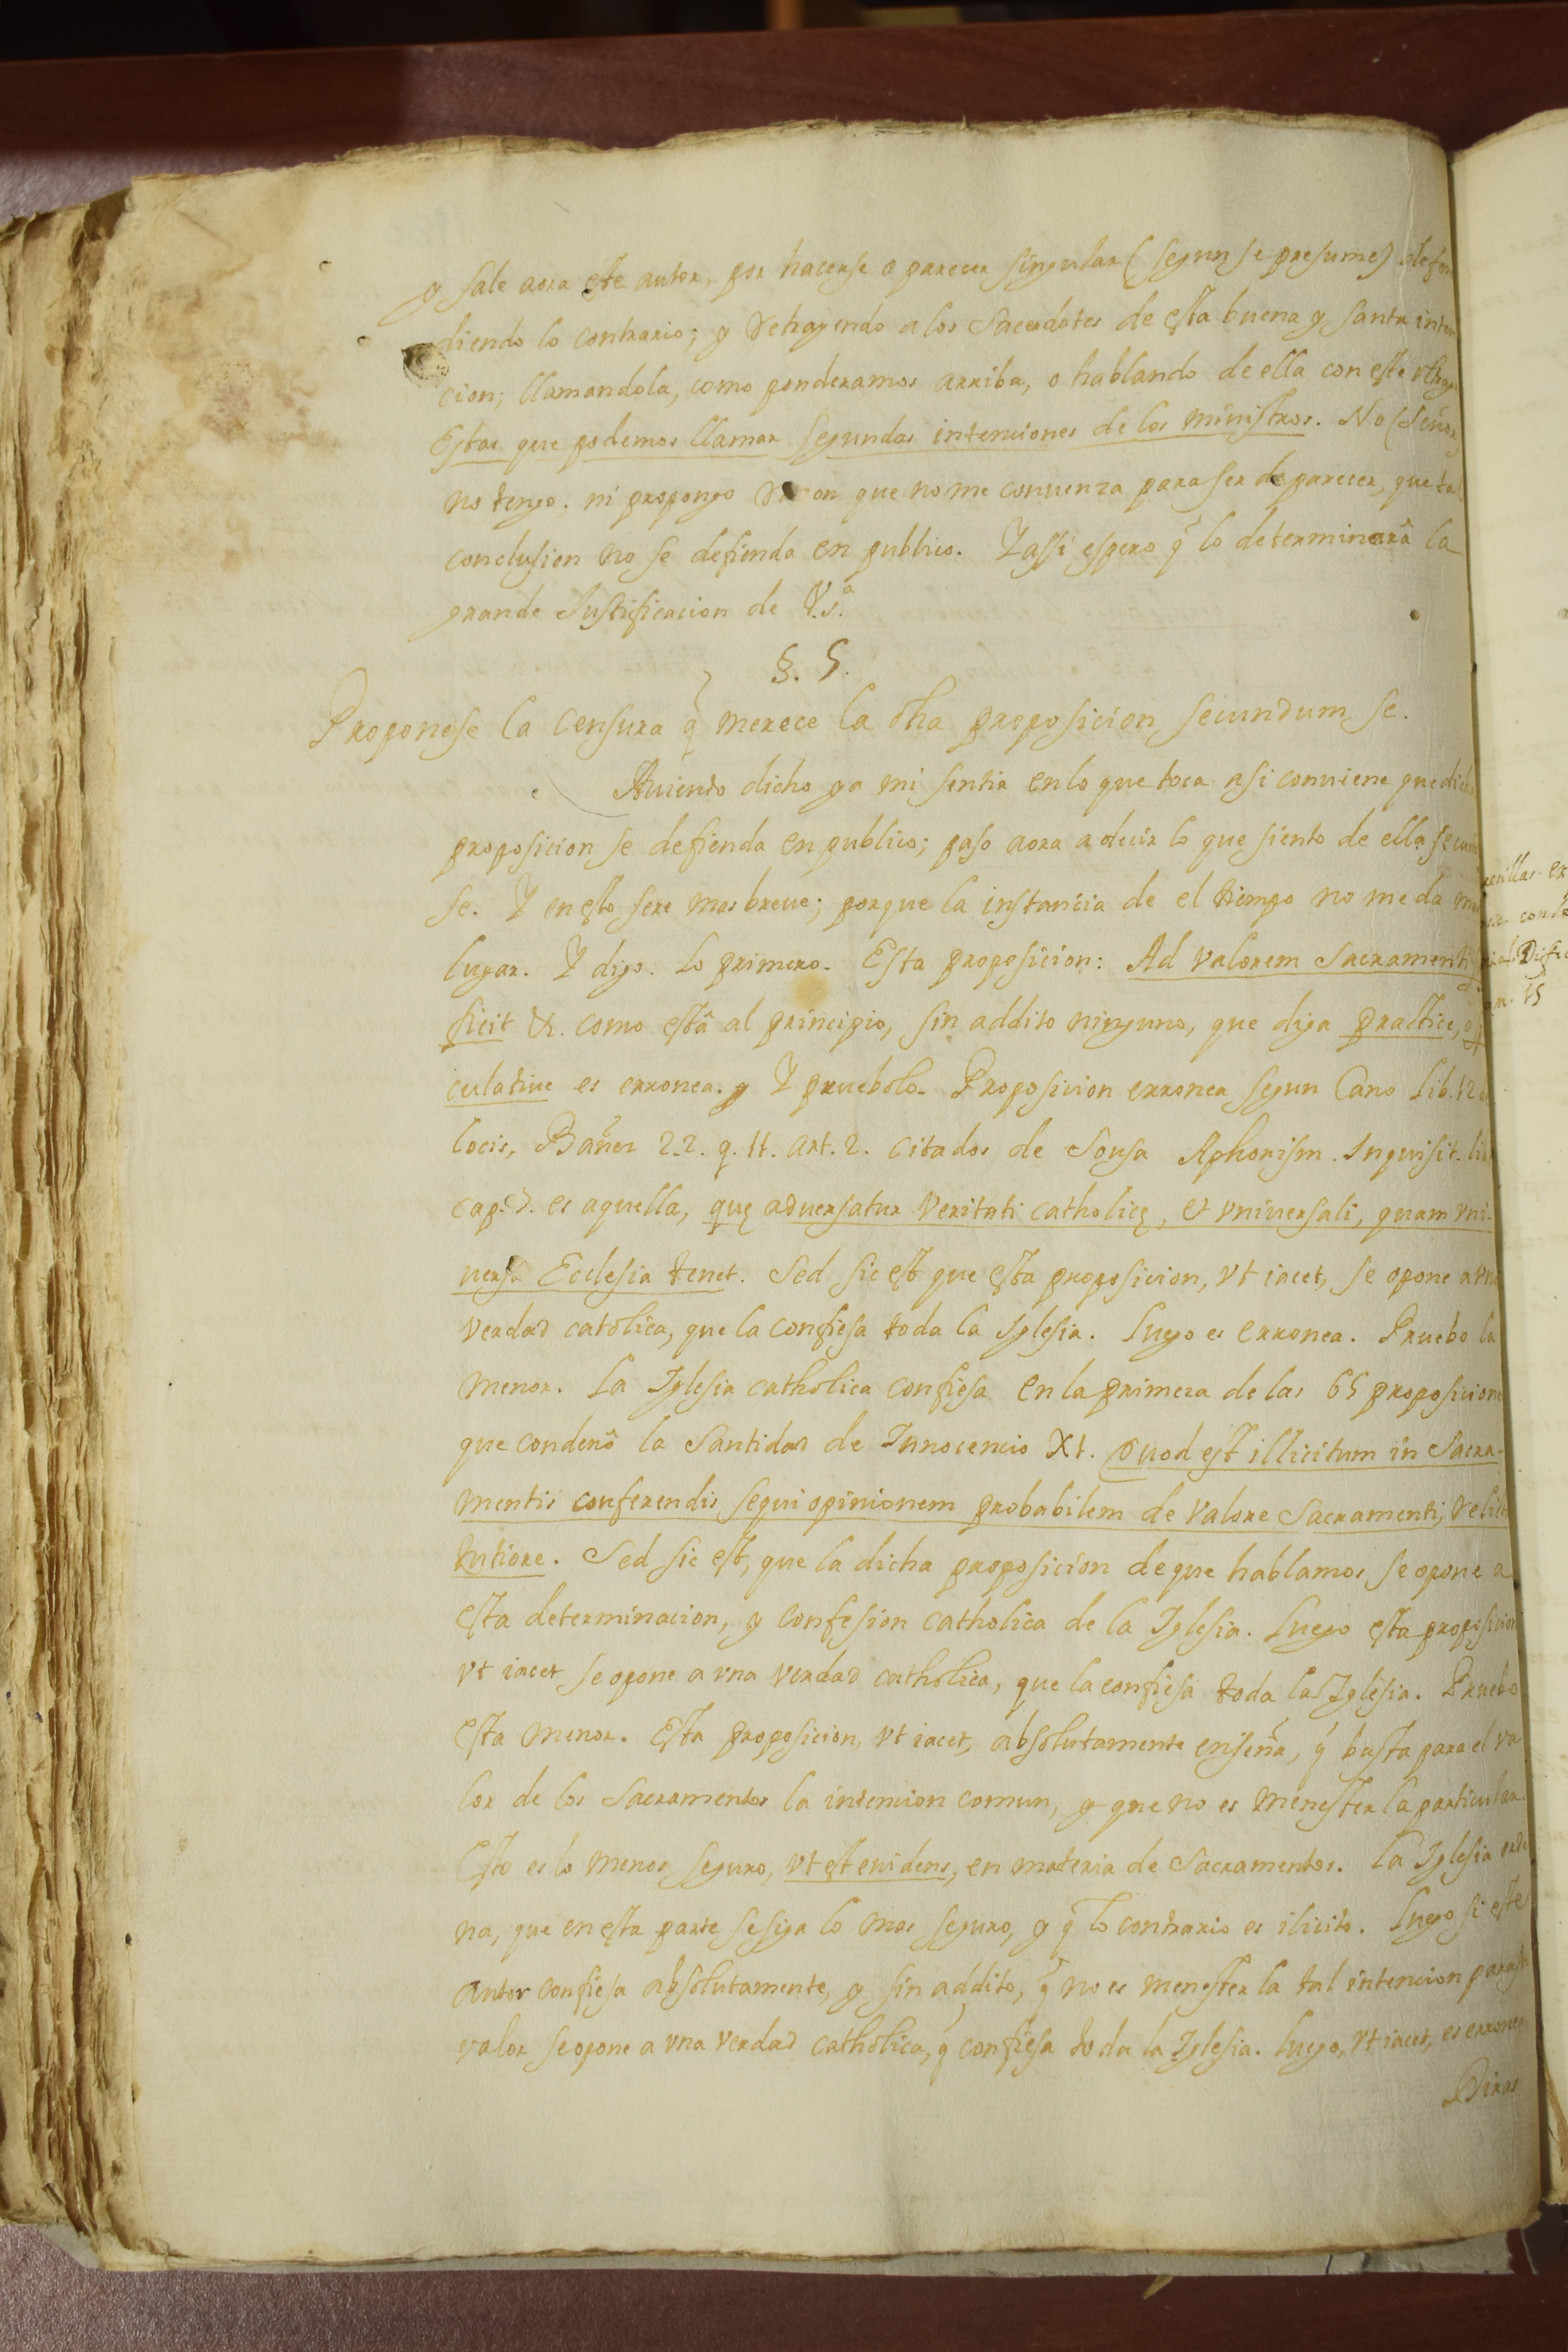 y sale aora este autor, por hacerse o parecer singular (segun se presume) defen
diendo lo contrario; y retrayendo a los Sacerdotes de esta buena y santa inten
cion; llamandola, como ponderamos arriba, o hablando de ella con este
Estas que podemos llamar segundas intenciones de los ministros. No (Señor)
no tengo. ni propongo que no me conuenza para ser de parecer, que tal
conclusion no se defienda en publico. Y assi espero q̃ lo determinarà la
grande Justificacion de V.S.ª
§. 5.
Proponese la censura q̃ merece la dha proposicion secundum se.
Auiendo dicho ya mi sentir en lo que toca a si conuiene que dicha
proposicion se defienda en publico; paso aora a decir lo que siento de ella secun
se. Y en esto sere mas breue; porque la instancia de el tiempo no me da
lugar. Y digo. Lo primero. Esta proposicion: Ad valorem Sacramenti
ficit &c. como està al principio, sin addito ninguno, que diga practice, o
culatiue es erronea. y Y pruebolo. Proposicion erronea segun Cano Lib. 12
locis, Bañez 2.2. q. 11. art. 2. citados de Sousa Aphorism. Inquisit. lib
cap. es aquella, quę aduersatur Veritati catholicę, et vniuersali, quam vni-
uersa Ecclesia tenet. Sed sic est que esta proposicion, vt iacet, se opone a vna
verdad catolica, que la confiesa toda la Iglesia. Luego es erronea. Pruebo la
menor. La Iglesia catholica confiesa en la primera de las 65 proposicione
que condenò la Santidad de Innocencio XI. Quod est illicitum in Sacra-
mentis conferendis sequi opinionem probabilem de valore Sacramenti, relict
tutiore. Sed sic est, que la dicha proposicion de que hablamos se opone a
esta determinacion, y confesion catholica de la Iglesia. Luego esta proposicion
vt iacet se opone a vna verdad catholica, que la confiesa toda la Iglesia. Pruebo
esta menor. Esta proposicion, vt iacet, absolutamente enseña, q̃ basta para el va
lor de los Sacramentos la intencion comun, y que no es menester la particular.
Esto es lo menos seguro, vt est euidens, en materia de Sacramentos. La Iglesia orde
na, que en esta parte se siga lo mas seguro, y q̃ lo contrario es ilicito. Luego si este
autor confiesa absolutamente, y sin addito, q̃ no es menester la tal intencion para su
valor se opone a vna verdad catholica, q̃ confiesa toda la Iglesia. Luego, vt iacet, es erronea
Diras